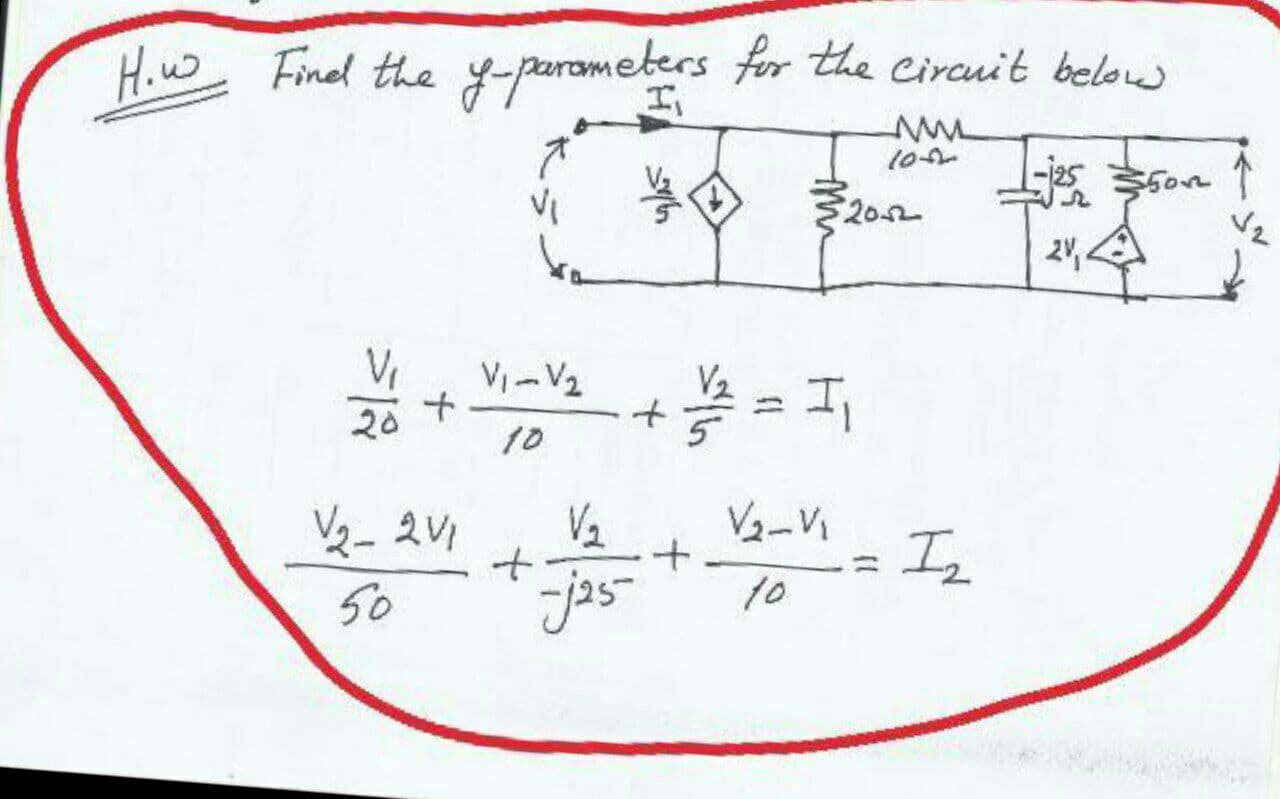 H.w Find the y-parameters for the circuit below
I₁
10Ω
V₂/5
20Ω
-j25Ω
50Ω
V₁
V₂
2V₁
+
-
V₁/20 + (V₁-V₂)/10 + V₂/5 = I₁
(V₂-2V₁)/50 + V₂/-j25 + (V₂-V₁)/10 = I₂